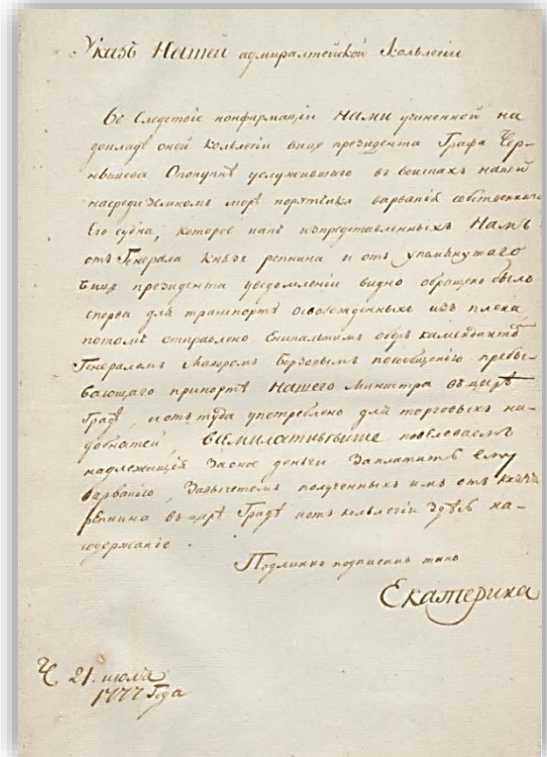 Указъ Нашей адмиралтейской Кольлегiи
Въ Следствiе конфирмацiи Нами учиненной на
докладъ оной Колъlegiи вице президента Графа Чер-
нышева Опокупкѣ услужившаго въ воискахъ нашей
насредиземномъ морѣ порутчика варвакiя собственнаго
Его судна, которое какъ изпредставленныхъ Намъ
отъ Генерала Князя репнина и отъ упомянутаго
вице президента уведомленiй видно обращено было
сперва для транспорта освобожденныхъ изъ плена,
потомъ отправлено Ениkaльскимъ оберъ камендантомъ
Генераломъ Маiоромъ Борзовымъ посообщенiю пребы-
вающаго припортѣ Нашего Министра въ царѣ
Градѣ, и отъ туда употреблено для торговыхъ на-
добностей, Всемилостивѣйше повелеваемъ
надлежащiя Заоное деньги Заплатить ему
варвакiю, Завычетомъ полученныхъ имъ отъ Князя
репнина въ царѣ Градѣ и отъ колълегiи Здѣсь на-
содержанiе.
Подлинно подписанъ тако
Екатерина
Ч. 21. июля
1777 Года